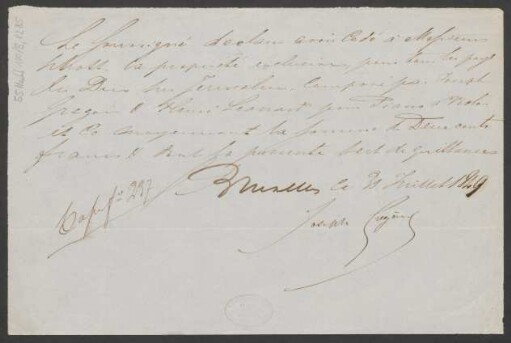 Le soussigné déclare avoir cédé à Messieurs
Schott la propriété exclusive, pour tous les pays
du Duo sur Jerusalem, composé par Joseph
Gregoir & Henri Leonard pour Piano & Violon
et ce moyennant la somme de Deux cents
francs dont la présente sert de quittance
Bruxelles ce 31 Juillet 1849
Cop. fo 297
Joseph Grégoir